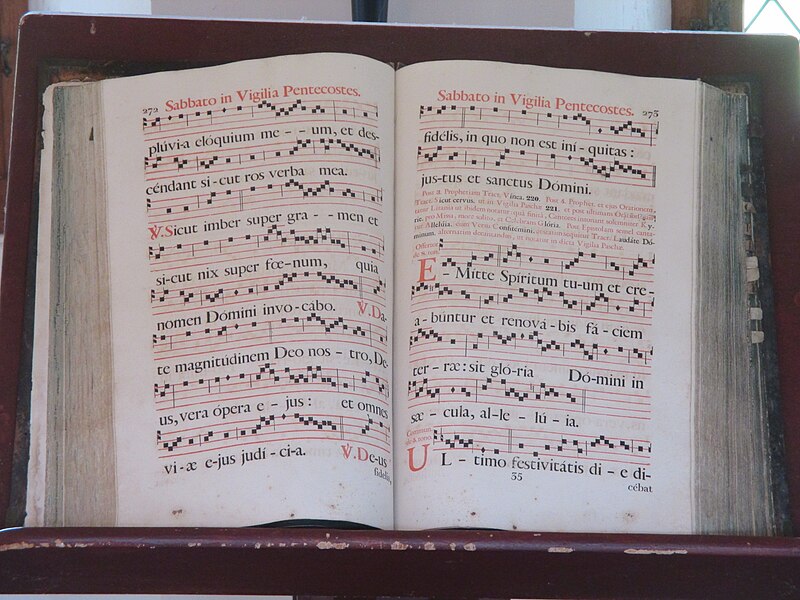 272 Sabbato in Vigilia Pentecostes.
plúvi-a elóquium me - - um, et des-
céndant si-cut ros verba mea.
V. Sicut imber super gra - - men et
si-cut nix super fœ-num, quia
nomen Dómini invo-cábo. V. Da-
te magnitúdinem Deo nos - tro, De-
us, vera ópera e - jus : et omnes
vi-æ e-jus judí - ci-a. V. De-us
fidélis,
Sabbato in Vigilia Pentecostes. 273
fidélis, in quo non est iní - quitas :
jus-tus et sanctus Dóminus.
Post 3. Prophetiam Tract. Vinea. 220. Post 4. Prophet. et ejus Orationem,
Tract. Sicut cervus, ut in Vigilia Paschæ 221. et post ultimam Orationem
tantur Litaniæ ut ibidem notatur, quâ finitâ, Cantores incipiunt solemniter Ky-
rie, pro Missa, more solito, et Celebrans Glória. Post Epistolam semel canta-
tur Allelúia, cum Versu Confitémini, quem consequitur Tract. Laudáte Dó-
minum, alternatim decantandus, ut notatur in dicta Vigilia Paschæ.
Offertor.
E - Mitte Spíritum tu-um et cre-
a - búntur et renová - bis fá - ciem
ter - ræ: sit gló-ria Dó-mini in
sæ - cula, al-le - lú - ia.
Commun.
U L - timo festivitátis di - e di-
35
cébat